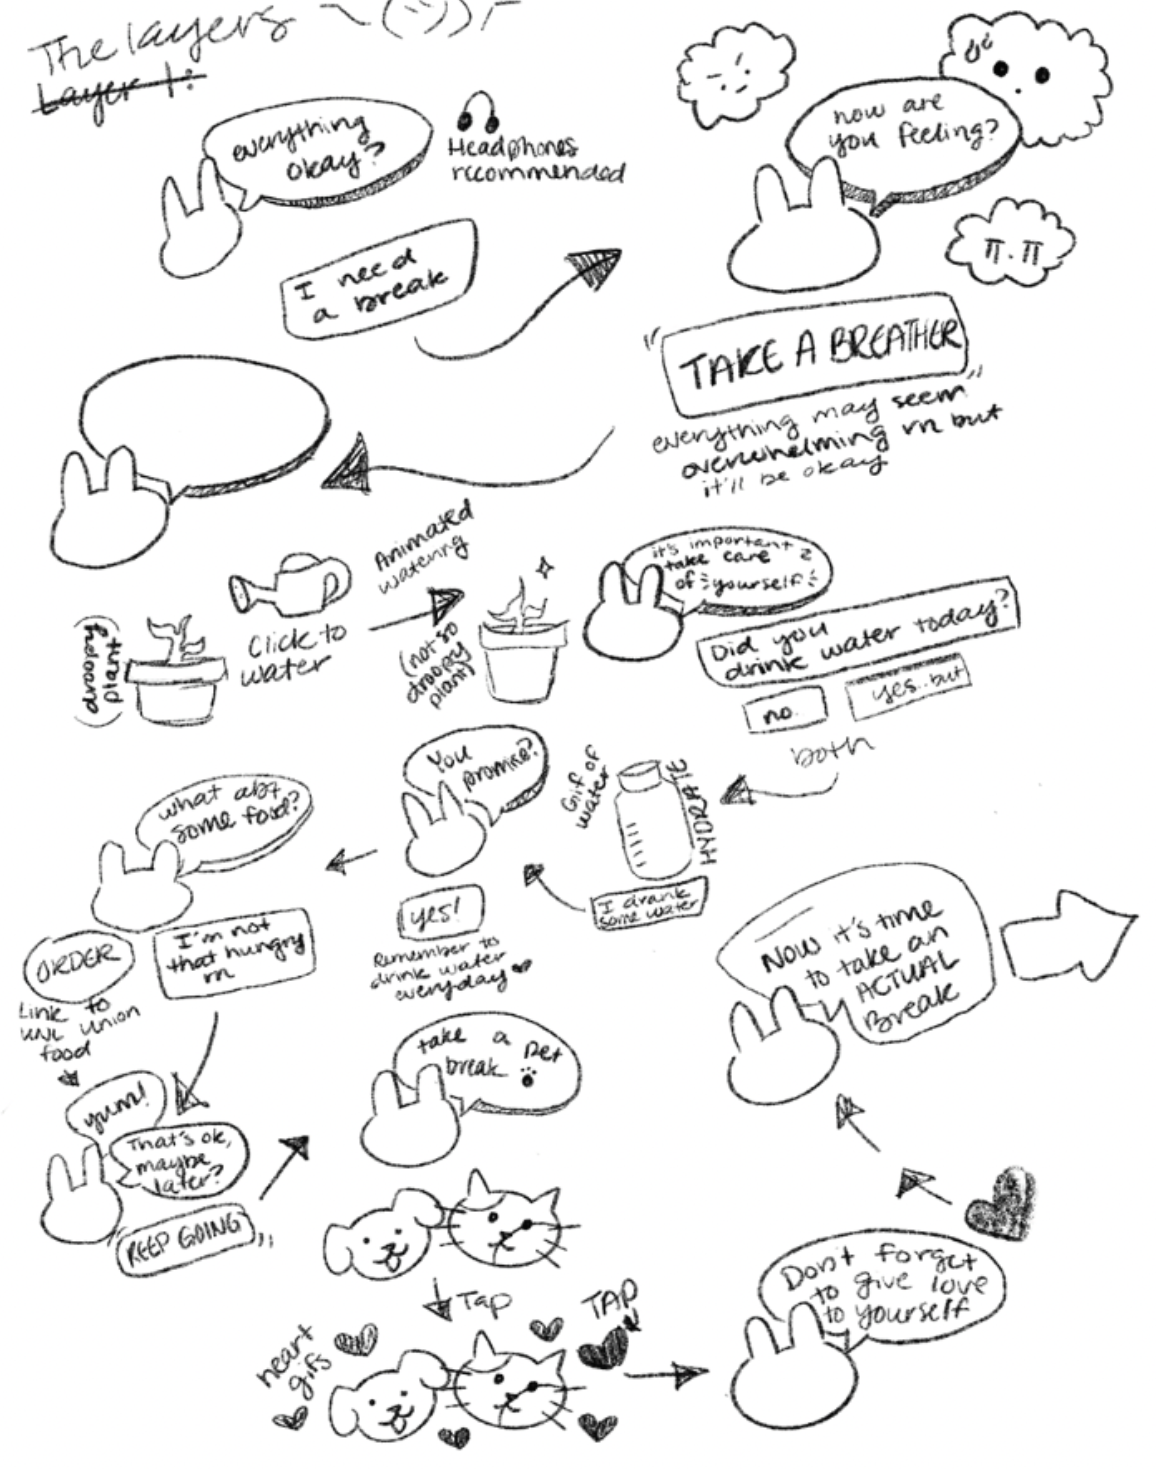 The layers ~(··))⁄
Layer 1:
everything
okay?
Headphones
recommended
I need
a break
how are
you feeling?
π.π
"TAKE A BREATHER"
everything may seem
overwhelming rn but
it'll be okay
(droopy
plant)
Click to
water
Animated
watering
(not so
droopy
plant)
it's important 2
take care
of yourself
Did you
drink water today?
no.
yes..but
both
Gif of
water
HYDRATE
I drank
some water
You
promise?
yes!
Remember to
drink water
everyday
what abt
some food?
ORDER
Link to
UNL Union
food
I'm not
that hungry
rn
yum!
That's ok,
maybe
later?
"KEEP GOING"
take a pet
break
Tap
heart
gifs
TAP
Don't forget
to give love
to yourself
Now it's time
to take an
ACTUAL
Break